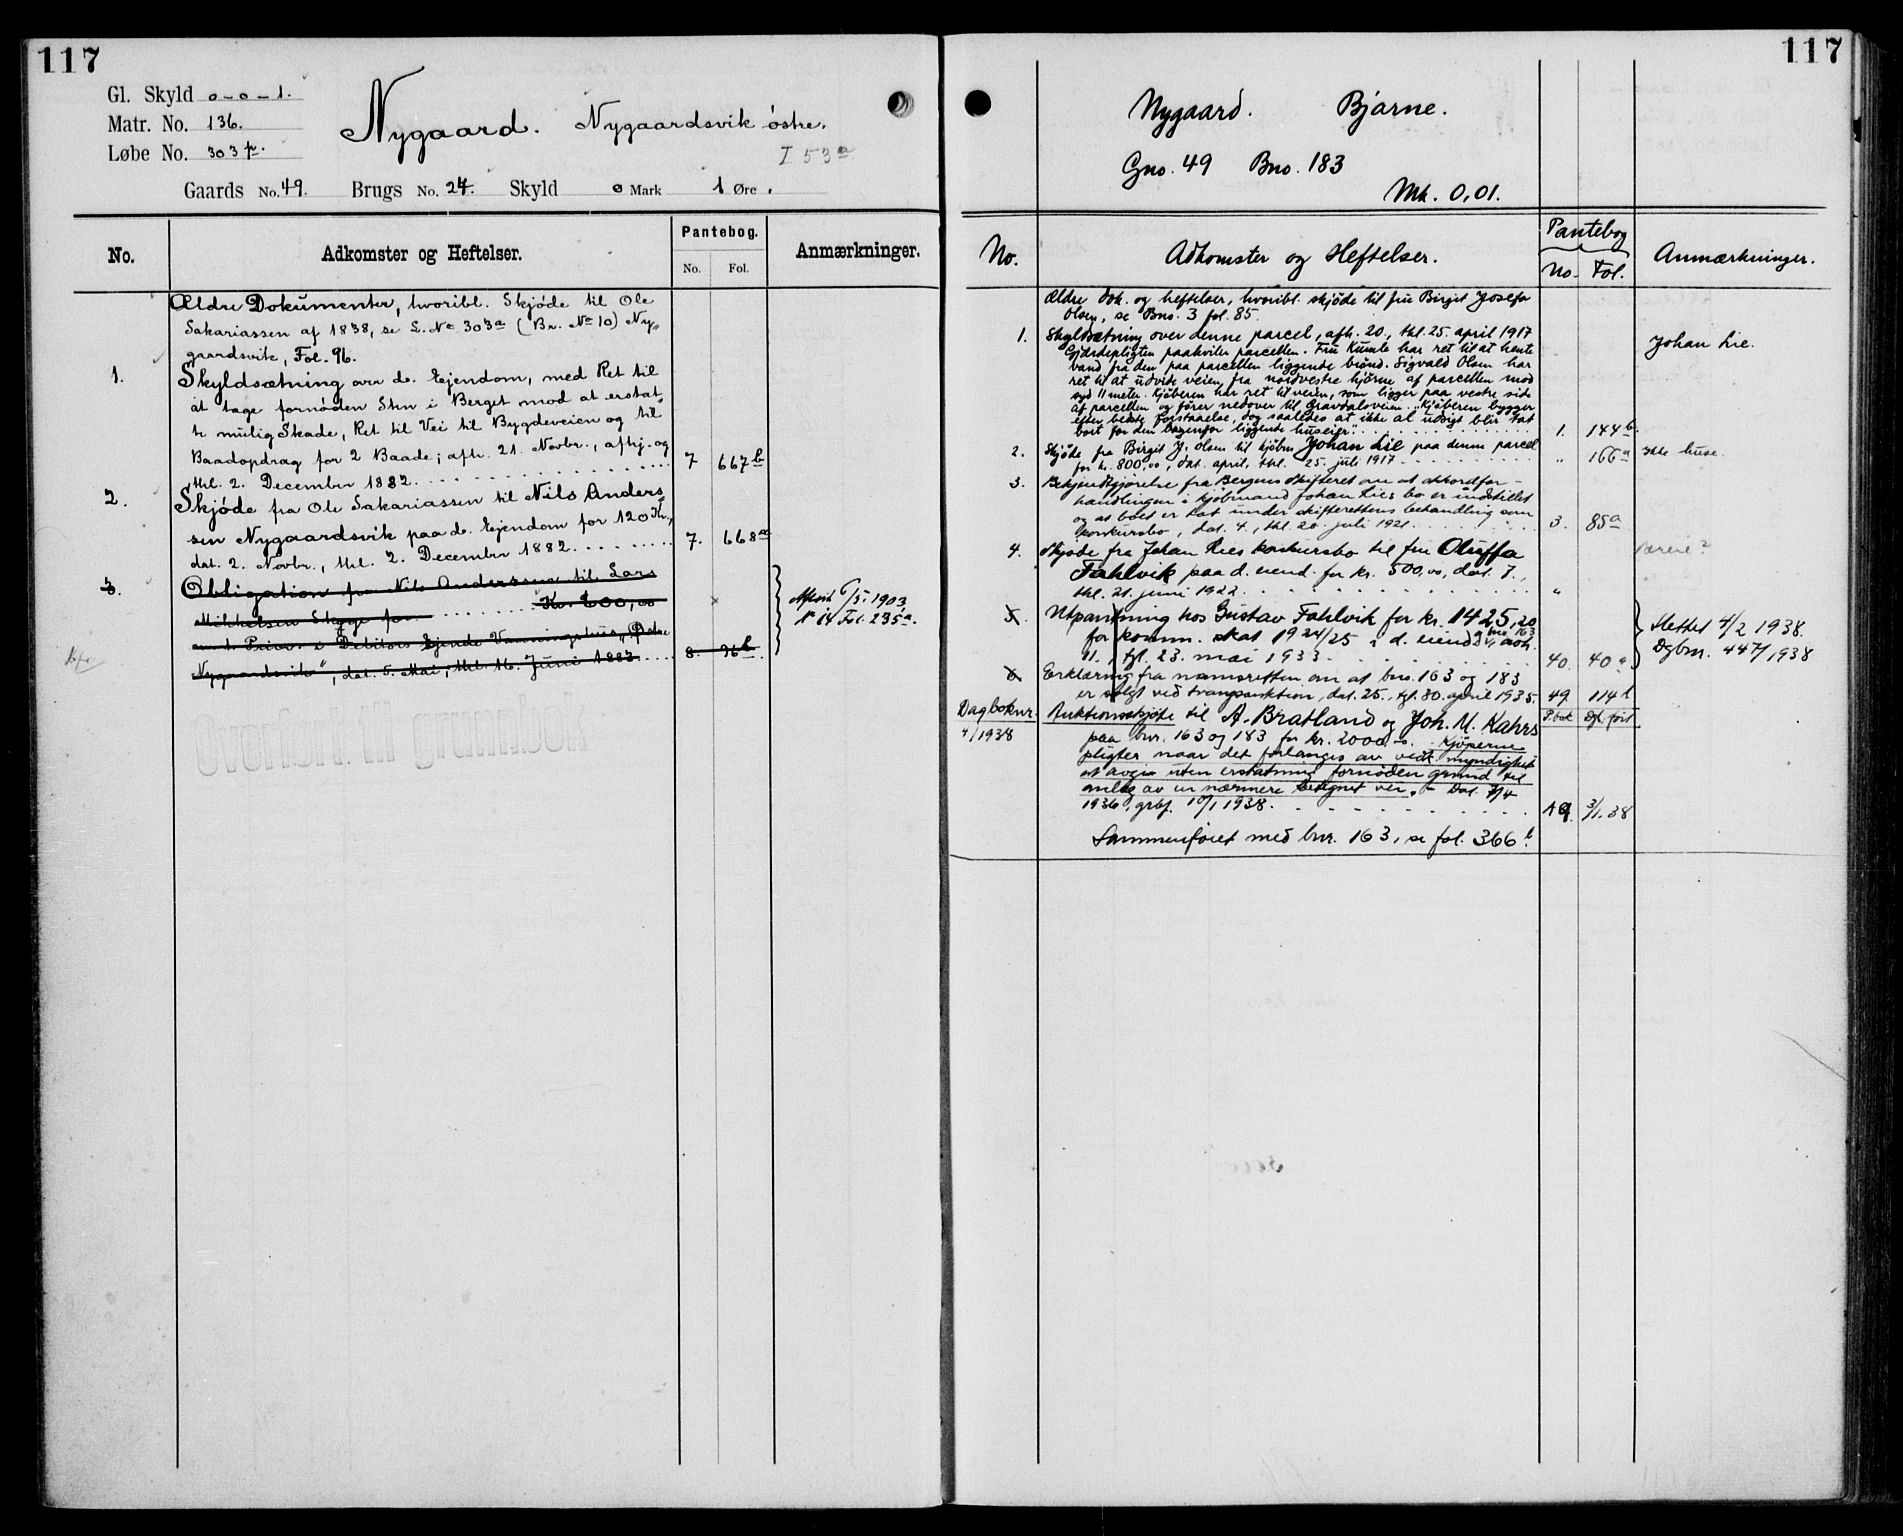 117
Gl. Skyld 0-0-1.
Matr. No. 136.
Løbe No. 303 p.
Nygaard. Nygaardsvik østre.
I 53a
Gaards No. 49. Brugs No. 24. Skyld 0 Mark 1 Øre.
No. Adkomster og Heftelser. Pantebog. No. Fol. Anmærkninger.
Ældre Dokumenter, hvoribl. Skjøde til Ole
Sakariassen af 1838, se L. No 303a (Br. No 10) Ny-
gaardsvik, Fol. 96.
1. Skyldsætning ovr d. Ejendom, med Ret til
at tage fornøden Sten i Berget mod at erstat-
te mulig Skade, Ret til Vei til Bygdeveien og til
Baadopdrag for 2 Baade; afh. 21. Novbr., afhj. og
thl. 2. December 1882. 7 667b
2. Skjøde fra Ole Sakariassen til Nils Anders-
sen Nygaardsvik paa d. Ejendom for 120 Kr.,
dat. 2. Novbr., thl. 2. December 1882. 7. 668a
3. Obligation fra Nils Anderssen til Lars
Mikkelsen Skage for Kr. 200,00
m. 1. Prior. i Debitors Ejende Vaaningshus, "Østre
Nygaardsvik", dat. 5. Mai, thl. 16. Juni 1883 8. 36b
Aflvist 6/5. 1903
No 14 Fol. 235a.
Overført til grunnbok
117
Nygaard. Bjarne.
Gno. 49 Bno. 183
Mk. 0,01.
No. Adkomster og Heftelser. Pantebog No. Fol. Anmærkninger.
Ældre dok. og heftelser, hvoribl. skjøde til fru Birgit Josefa
Olsen, se Bno. 3 fol. 85.
1. Skyldsætning over denne parcel, afh. 20., thl. 25. april 1917
Gjærdepligten paahviler parcellen. Fru Kumle har ret til at hente
vand fra den paa parcellen liggende brønd. Sigvald Olsen har
ret til at udvide veien fra nordvestre hjørne af parcellen mod
syd 11 meter. Kjøberen har ret til veien, som ligger paa vestre side
af parcellen og fører nedover til Gravdalsveien. "Kjøberen bygger
efter bedste forstaaelse, dog saaledes at ikke al udsigt blir tat
bort for den bagenfor liggende huseier". 1. 144b
Johan Lie.
2. Skjøde fra Birgit J. Olsen til kjøbm. Johan Lie paa denne parcel
for kr. 800,00, dat. april, thl. 25. juli 1917 " 166a ikke huse.
3. Bekjendtgjørelse fra Bergens skifteret om at akkordfor-
handlingen i kjøbmand Johan Lies bo er indstillet
og at boet er tat under skifterettens behandling som
konkursbo, dat. 4., thl. 20. juli 1921. 3. 85a
4. Skjøde fra Johan Lies konkursbo til fru Oluffa
Fahlvik paa d. eiend. for kr. 500,00, dat. 7.,
thl. 21. juni 1922. "
5. Utpantning hos Gustav Fahlvik for kr. 1425,20
for komm. skat 1924/25 i d. eiend. og bno 163
11., tgl. 23. mai 1933. 40. 40a
Slettet 4/2 1938.
Dgbnr. 447/1938
6. Erklæring fra namsretten om at bno. 163 og 183
er solgt ved tvangsauktion, dat. 25., tgl. 30. april 1935. 49 114b
Dagboknr. Auktionsskjøte til A. Bratland og Joh. M. Kahrs P.bok Dgl. ført
4/1938 paa bnr. 163 og 183 for kr. 2000,-. Kjøperne
pligter naar det forlanges av vedk. myndighet
at avgi uten erstatning fornøden grund til
anlæg av en nærmere betegnet vei. Dat. 7/4
1936, grbf. 10/1 1938. A 9. 3/1.38
Sammenføiet med bnr. 163, se fol. 366b.